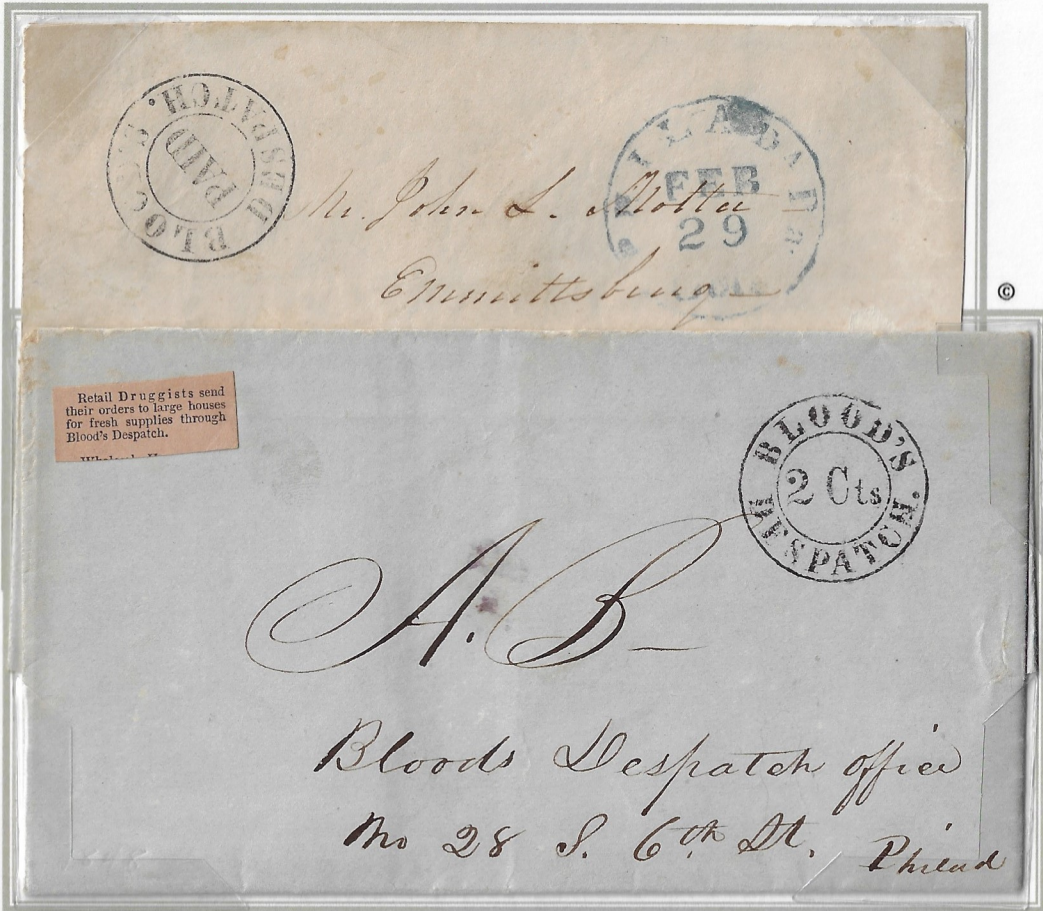 BLOOD'S DESPATCH.
PAID
PHILADA Pa.
FEB
29
Mr. John L. Motter
Emmittsburg
©
Retail Druggists send
their orders to large houses
for fresh supplies through
Blood's Despatch.
BLOOD'S DESPATCH.
2 Cts
A. B
Bloods Despatch office
No 28 S. 6th St. Philad